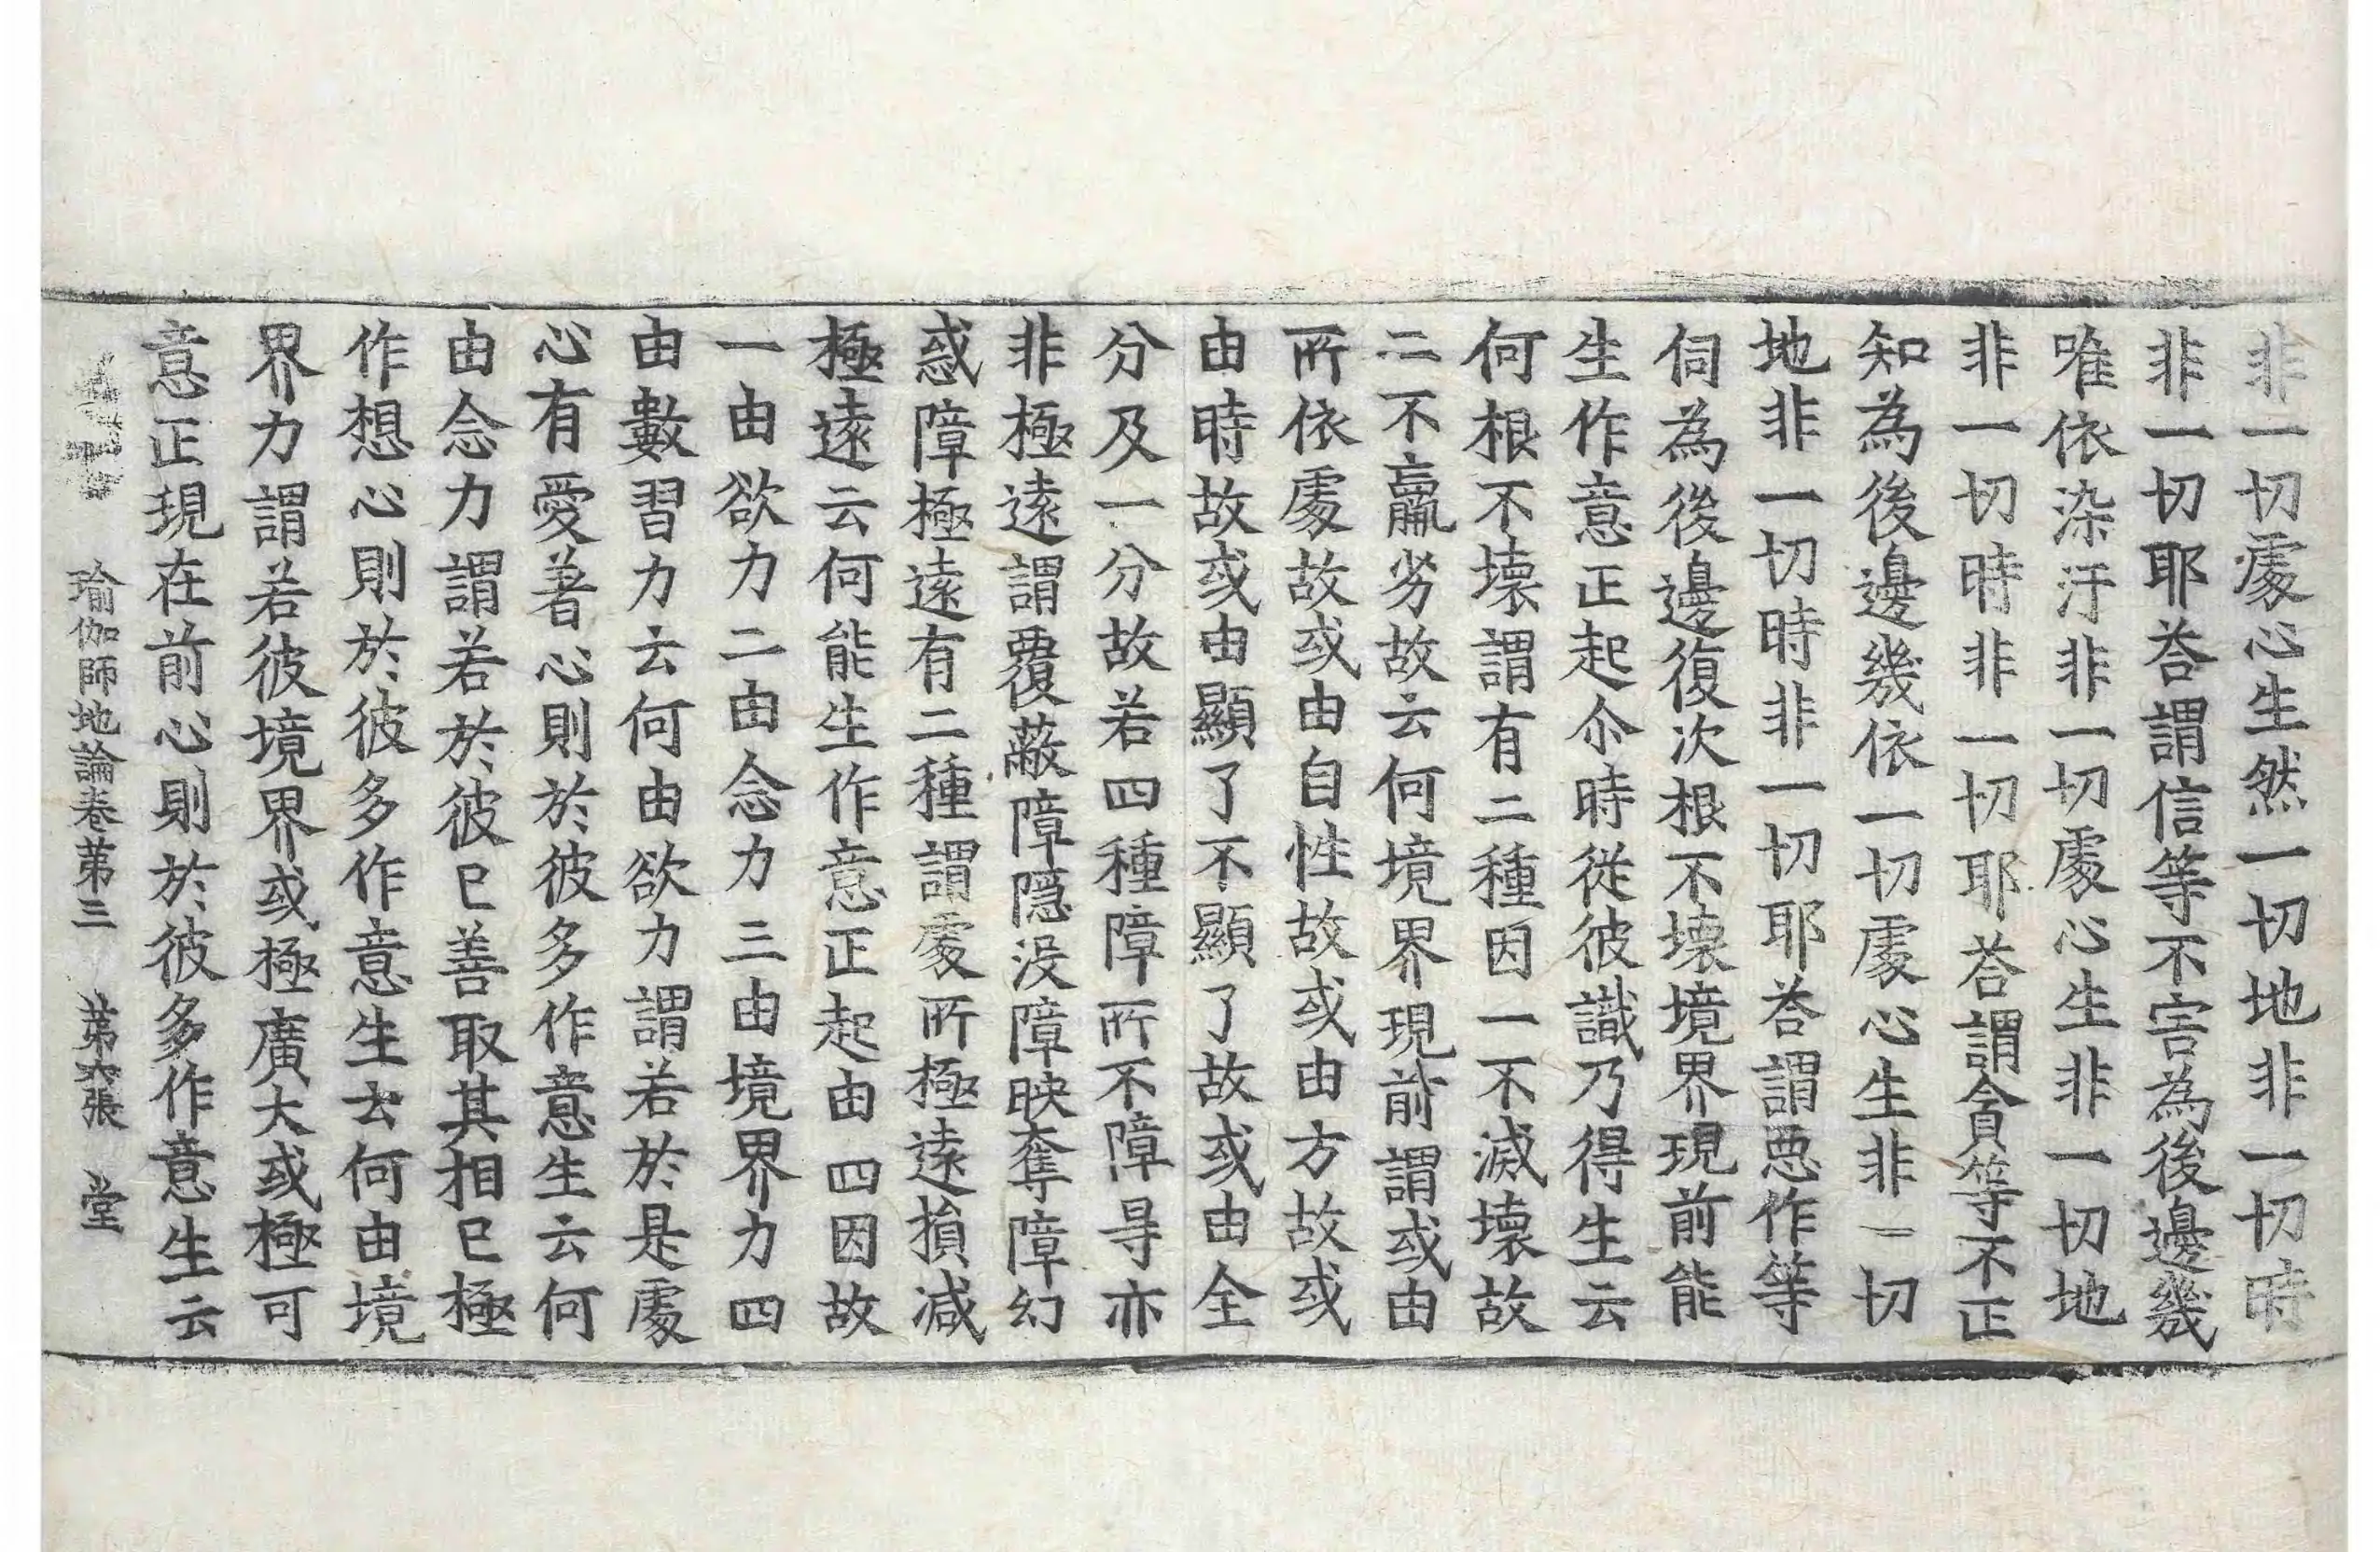 非一切處心生然一切地非一切時
非一切耶荅謂信等不害為後邊幾
唯依染汙非一切處心生非一切地
非一切時非一切耶荅謂貪等不正
知為後邊幾依一切處心生非一切
地非一切時非一切耶荅謂惡作等
伺為後邊復次根不壞境界現前能
生作意正起尒時從彼識乃得生云
何根不壞謂有二種因一不滅壞故
二不羸劣故云何境界現前謂或由
所依處故或由自性故或由方故或
由時故或由顯了不顯了故或由全
分及一分故若四種障所不障㝵亦
非極遠謂覆蔽障隱沒障映奪障幻
惑障極遠有二種謂處所極遠損減
極遠云何能生作意正起由四因故
一由欲力二由念力三由境界力四
由數習力云何由欲力謂若於是處
心有愛著心則於彼多作意生云何
由念力謂若於彼已善取其相已極
作想心則於彼多作意生云何由境
界力謂若彼境界或極廣大或極可
意正現在前心則於彼多作意生云
瑜伽師地論卷第三 第六張 堂